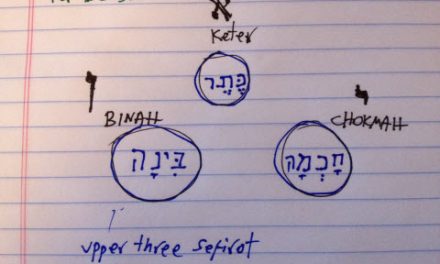 א
Keter
כֶּתֶר
BINAH
CHOKMAH
בִּינָה
חָכְמָה
upper three sefirot